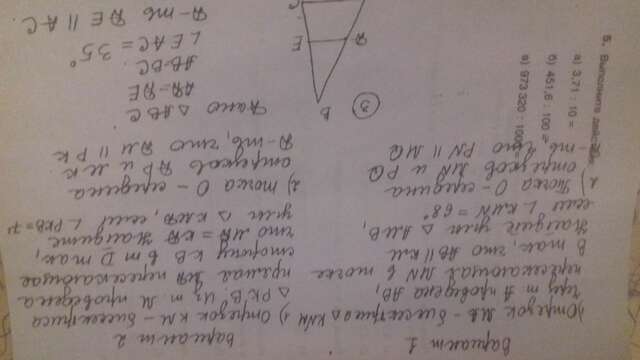 Вариант 1
1) Отрезок МА - биссектриса △ KNM
Через т. А проведена АВ,
пересекающая MN в точке
В так, что АВ || КМ
Найдите углы △ АМВ,
если ∠ KMN = 68°
2) Точка О - середина
отрезков MN и PQ
Д-ть, что PN || MQ
Вариант 2
1) Отрезок КМ - биссектриса
△ РКВ. Из т. М проведена
прямая пересекающая
сторону КВ в т D так,
что MD = KD Найдите
углы △ KMD, если ∠ PKB = 7
2) Точка О - середина
отрезков DP и МК.
Д-ть, что DM || PK
3
B
D
E
C
Дано △ ABC
AD=DE
AB=BC.
∠ EAC = 35°
Д-ть DE || AC.
5. Выполните
а) 3,71 : 10 =
б) 451,6 : 100 =
в) 973 320 : 1000 =